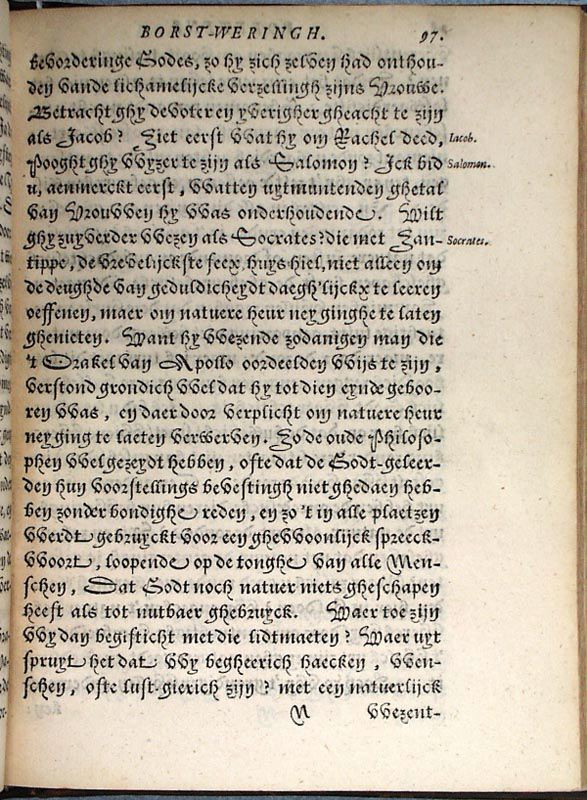 BORST-WERINGH. 97.
bevorderinge Godes, zo hy zich zelven had onthou-
den vande lichamelijcke verzellingh zijns Vrouwe.
Betracht ghy devoter en yverigher gheacht te zijn
als Jacob? Ziet eerst wat hy om Rachel deed, Iacob.
Pooght ghy wyzer te zijn als Salomon? Ick bid Salomon.
u, aenmerckt eerst, watten uytmuntenden ghetal
van Vrouwen hy was onderhoudende. Wilt
ghy zuyverder wezen als Socrates? die met Zan- Socrates.
tippe, de wrevelijckste feex, huys hiel, niet alleen om
de deughde van geduldicheydt daegh'lijckx te leeren
oeffenen, maer om natuere heur neyginghe te laten
ghenieten. Want hy wezende zodanigen man die
't Orakel van Apollo oordeelden wijs te zijn,
verstond grondich wel dat hy tot dien eynde geboo-
ren was, en daer door verplicht om natuere heur
neyging te laeten verwerven. Zo de oude Philoso-
phen wel gezeydt hebben, ofte dat de Godt-geleer-
den hun voorstellings bevestingh niet ghedaen heb-
ben zonder bondighe reden, en zo 't in alle plaetzen
werdt gebruyckt voor een ghewoonlijck spreeck-
woort, loopende op de tonghe van alle Men-
schen, Dat Godt noch natuer niets gheschapen
heeft als tot nutbaer ghebruyck. Waer toe zijn
wy dan begifticht met die lidtmaeten? Waer uyt
spruyt het dat wy begheerich haecken, wen-
schen, ofte lust-gierich zijn? met een natuerlijck
N wezent-